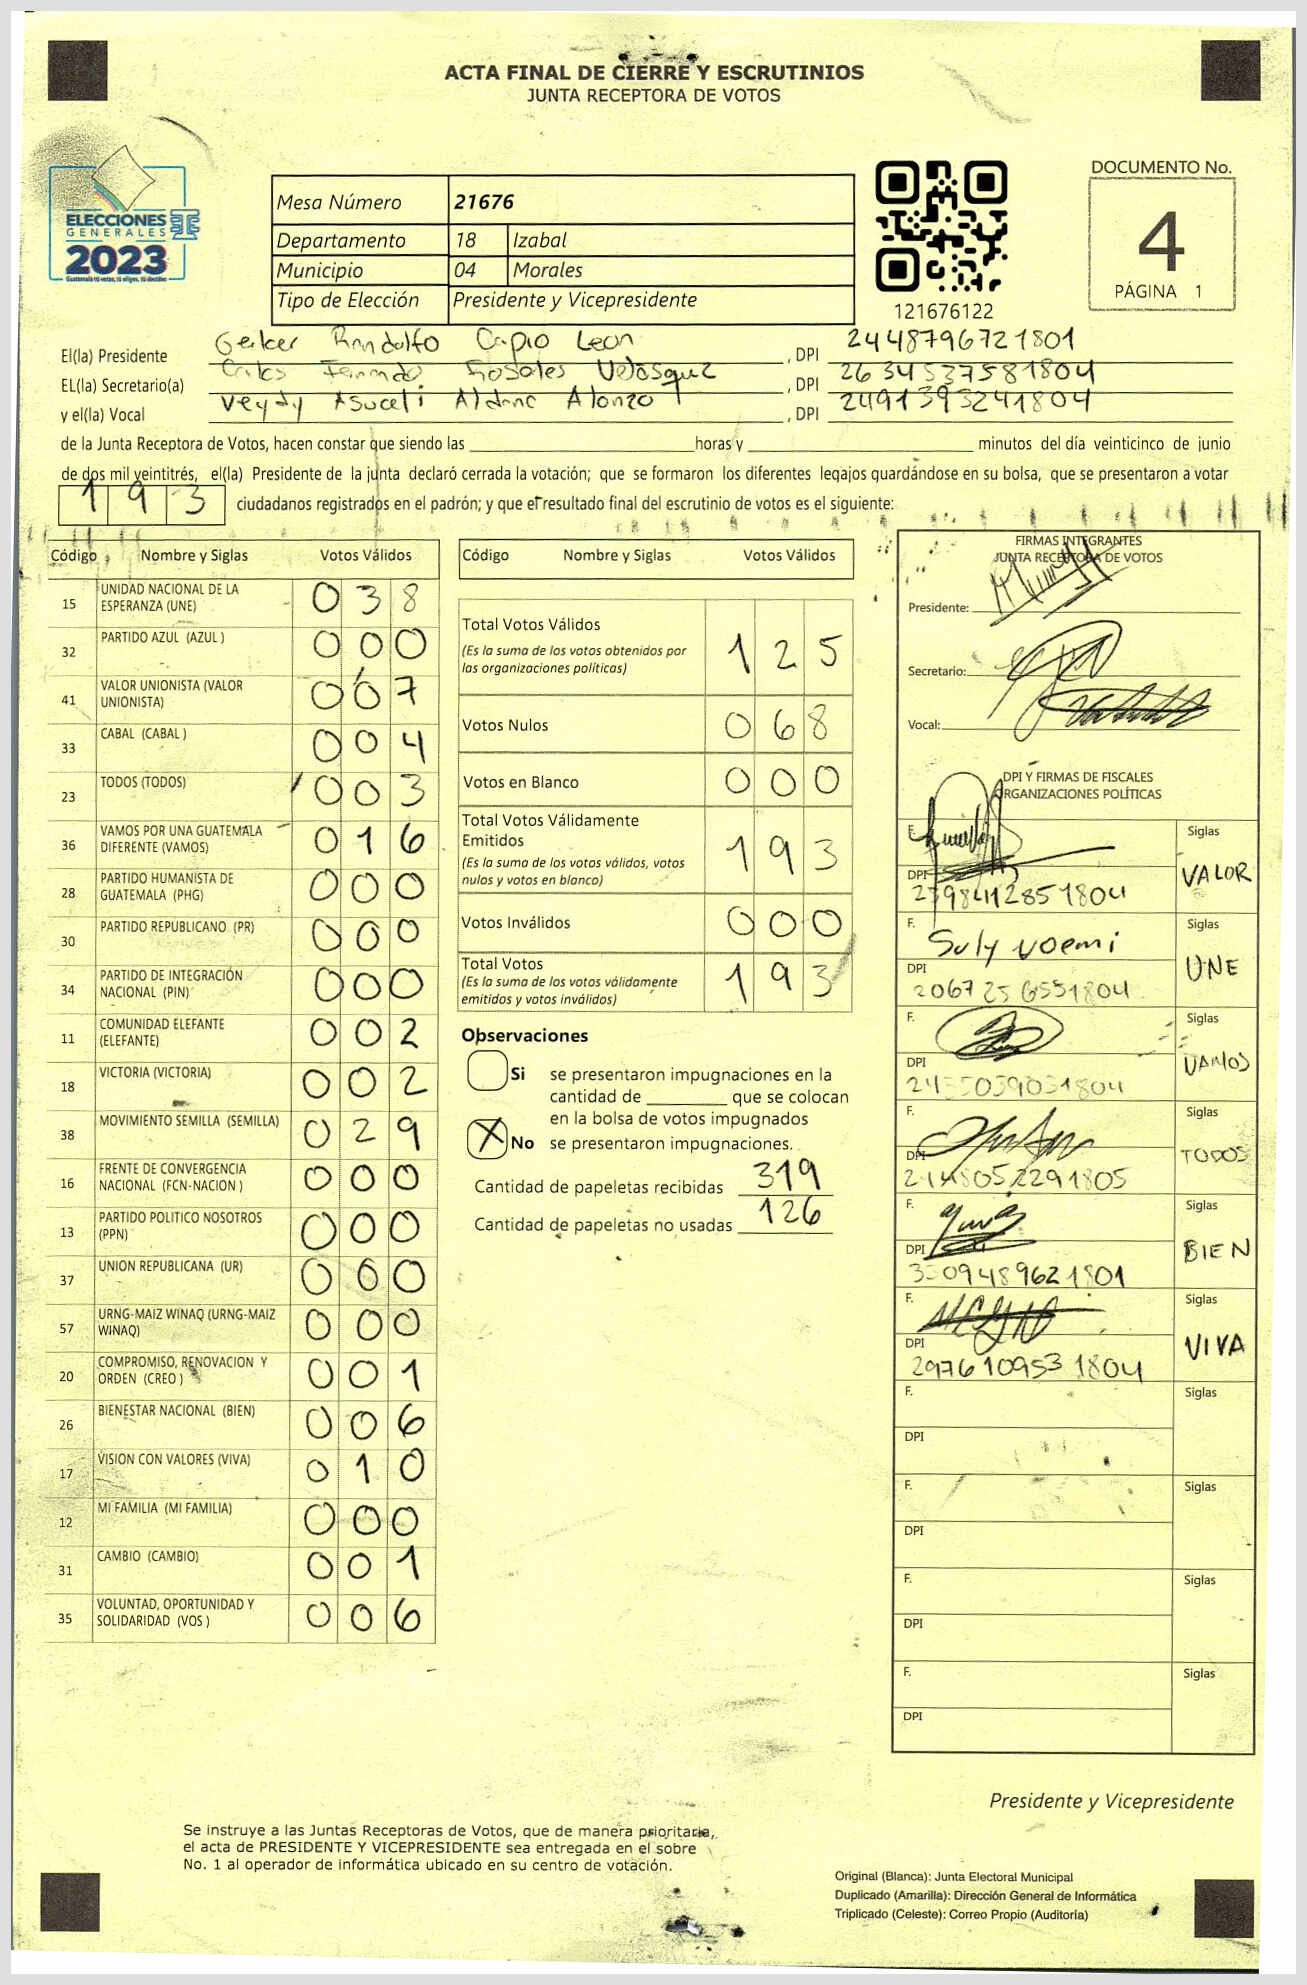 ACTA FINAL DE CIERRE Y ESCRUTINIOS
JUNTA RECEPTORA DE VOTOS
ELECCIONES
GENERALES
2023
Mesa Número 21676
Departamento 18 Izabal
Municipio 04 Morales
Tipo de Elección Presidente y Vicepresidente
121676122
DOCUMENTO No.
4
PÁGINA 1
El(la) Presidente Gerber Randolfo Leon , DPI 2448796721801
EL(la) Secretario(a) Velasquez , DPI 2634537581804
y el(la) Vocal Aldana Alonzo , DPI 2491393241804
de la Junta Receptora de Votos, hacen constar que siendo las horas y minutos del día veinticinco de junio
de dos mil veintitrés, el(la) Presidente de la junta declaró cerrada la votación; que se formaron los diferentes legajos guardándose en su bolsa, que se presentaron a votar
193 ciudadanos registrados en el padrón; y que el resultado final del escrutinio de votos es el siguiente:
Código Nombre y Siglas Votos Válidos
15 UNIDAD NACIONAL DE LA ESPERANZA (UNE) 038
32 PARTIDO AZUL (AZUL ) 000
41 VALOR UNIONISTA (VALOR UNIONISTA) 007
33 CABAL (CABAL ) 004
23 TODOS (TODOS) 003
36 VAMOS POR UNA GUATEMALA DIFERENTE (VAMOS) 016
28 PARTIDO HUMANISTA DE GUATEMALA (PHG) 000
30 PARTIDO REPUBLICANO (PR) 000
34 PARTIDO DE INTEGRACIÓN NACIONAL (PIN) 000
11 COMUNIDAD ELEFANTE (ELEFANTE) 002
18 VICTORIA (VICTORIA) 002
38 MOVIMIENTO SEMILLA (SEMILLA) 029
16 FRENTE DE CONVERGENCIA NACIONAL (FCN-NACION ) 000
13 PARTIDO POLITICO NOSOTROS (PPN) 000
37 UNION REPUBLICANA (UR) 000
57 URNG-MAIZ WINAQ (URNG-MAIZ WINAQ) 000
20 COMPROMISO, RENOVACION Y ORDEN (CREO ) 001
26 BIENESTAR NACIONAL (BIEN) 006
17 VISION CON VALORES (VIVA) 010
12 MI FAMILIA (MI FAMILIA) 000
31 CAMBIO (CAMBIO) 001
35 VOLUNTAD, OPORTUNIDAD Y SOLIDARIDAD (VOS ) 006
Código Nombre y Siglas Votos Válidos
Total Votos Válidos 125
(Es la suma de los votos obtenidos por
las organizaciones políticas)
Votos Nulos 068
Votos en Blanco 000
Total Votos Válidamente
Emitidos 193
(Es la suma de los votos válidos, votos
nulos y votos en blanco)
Votos Inválidos 000
Total Votos 193
(Es la suma de los votos válidamente
emitidos y votos inválidos)
Observaciones
Si se presentaron impugnaciones en la
cantidad de que se colocan
en la bolsa de votos impugnados
X No se presentaron impugnaciones.
Cantidad de papeletas recibidas 319
Cantidad de papeletas no usadas 126
FIRMAS INTEGRANTES
JUNTA RECEPTORA DE VOTOS
Presidente:
Secretario:
Vocal:
DPI Y FIRMAS DE FISCALES
ORGANIZACIONES POLÍTICAS
F. Siglas
DPI VALOR
F. Suly Noemi Siglas
DPI UNE
2067256551804
F. Siglas
DPI VAMOS
F. Siglas
DPI TODOS
F. Siglas
DPI BIEN
F. Siglas
DPI VIVA
2976109531804
F. Siglas
DPI
F. Siglas
DPI
F. Siglas
DPI
F. Siglas
DPI
Presidente y Vicepresidente
Se instruye a las Juntas Receptoras de Votos, que de manera prioritaria,
el acta de PRESIDENTE Y VICEPRESIDENTE sea entregada en el sobre
No. 1 al operador de informática ubicado en su centro de votación.
Original (Blanca): Junta Electoral Municipal
Duplicado (Amarilla): Dirección General de Informática
Triplicado (Celeste): Correo Propio (Auditoría)